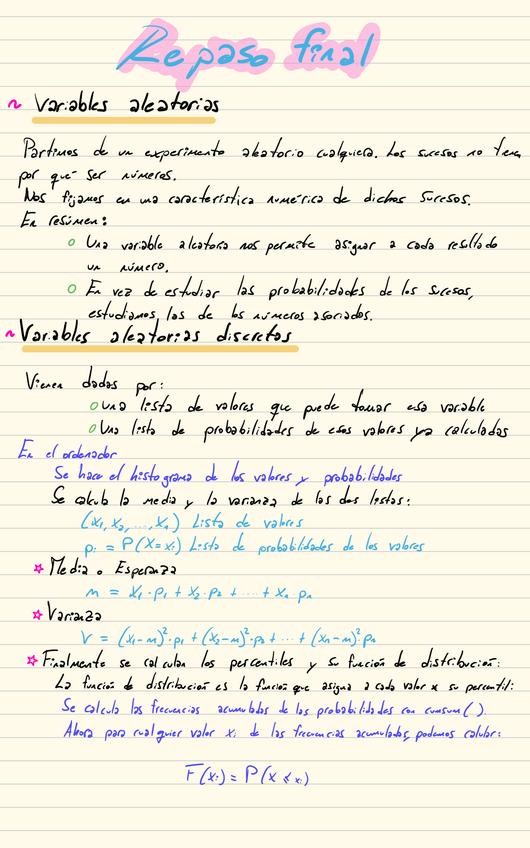 Repaso final
~ Variables aleatorias
Partimos de un experimento aleatorio cualquiera. Los sucesos no tienen
por que ser números.
Nos fijamos en una característica numérica de dichos sucesos.
En resumen:
o Una variable aleatoria nos permite asignar a cada resultado
un número.
o En vez de estudiar las probabilidades de los sucesos,
estudiamos las de los números asociados.
~ Variables aleatorias discretas
Vienen dadas por:
o una lista de valores que puede tomar esa variable
o Una lista de probabilidades de esos valores ya calculadas
En el ordenador
Se hace el histograma de los valores y probabilidades
Se calcula la media y la varianza de las dos listas:
(x₁, x₂, ..., xₙ) Lista de valores
pᵢ = P(X=xᵢ) Lista de probabilidades de los valores
☆ Media o Esperanza
m = x₁·p₁ + x₂·p₂ + ... + xₙ·pₙ
☆ Varianza
V = (x₁-m)²·p₁ + (x₂-m)²·p₂ + ... + (xₙ-m)²·pₙ
☆ Finalmente se calculan los percentiles y su función de distribución:
La función de distribución es la función que asigna a cada valor x su percentil:
Se calcula las frecuencias acumuladas de las probabilidades con cumsum().
Ahora para cualquier valor xᵢ de las frecuencias acumuladas, podemos calcular:
F(xᵢ) = P(x ≤ xᵢ)